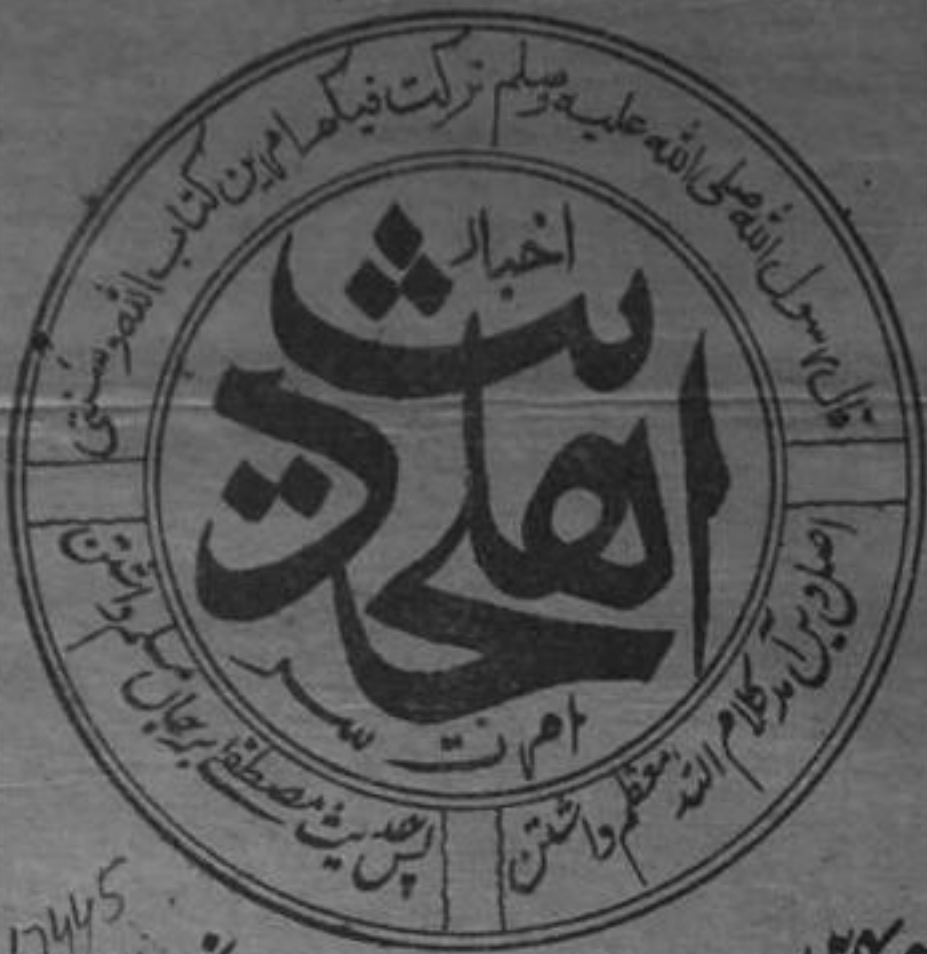 قال رسول الله صلى الله عليه وسلم تركت فيكم امرين كتاب الله وسنتي
اخبار
اهلحدیث
امرتسر
اصل دین آمد کلام اللہ معظم داشتن
پس حدیث مصطفےٰ بر جاں مسلم داشتن
17445